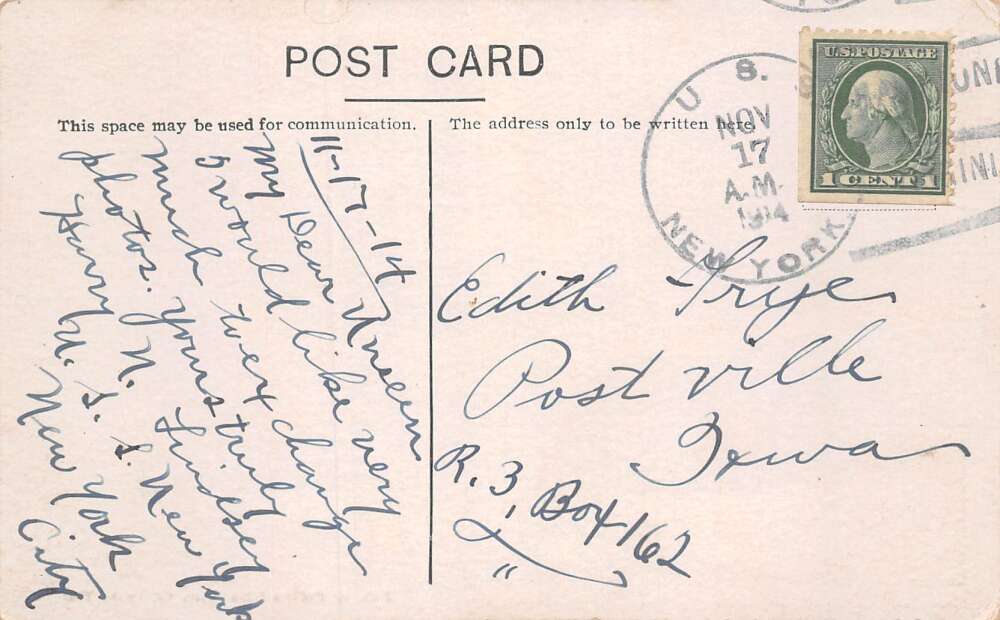 POST CARD
This space may be used for communication.
The address only to be written here.
U. S. S.
NOV
17
A.M.
1914
NEW YORK
U.S. POSTAGE
1 CENT 1
11-17-14
My Dear Unseen
I would like very
much to exchange
photos. Yours truly
Harry N. Lindsey
U. S. S. New York
New York
City
Edith Frye
Postville
Iowa
R. 3, Box 162